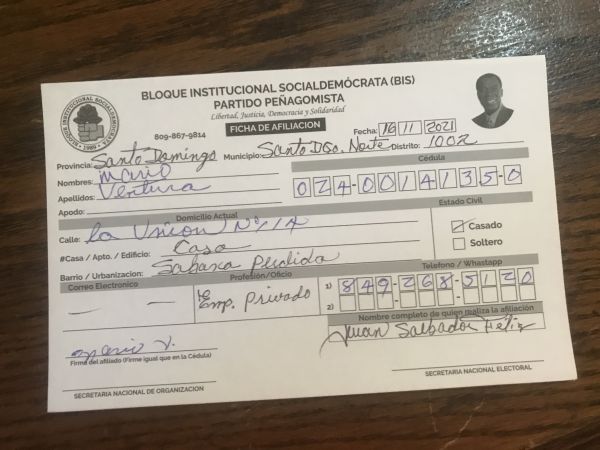 BLOQUE INSTITUCIONAL SOCIALDEMÓCRATA (BIS)
PARTIDO PEÑAGOMISTA
Libertad, Justicia, Democracia y Solidaridad
BLOQUE INSTITUCIONAL SOCIALDEMOCRATA
1989
809-867-9814
FICHA DE AFILIACION
Fecha: 16 11 2021
Provincia: Santo Domingo Municipio: Santo Dgo. Norte Distrito: 1002
Nombres: Mario
Apellidos: Ventura
Apodo:
Cédula
024-0014135-0
Domicilio Actual
Estado Civil
Calle: la Union Nº 14
Casado
#Casa / Apto. / Edificio: Casa
Soltero
Barrio / Urbanizacion: Sabana Perdida
Correo Electronico
Profesión/Oficio
Telefono / Whastapp
— —
Emp. Privado
1) 849-268-5120
2)
Nombre completo de quien realiza la afiliación
Juan Salbador Feliz
Mario V.
Firma del afiliado (Firme igual que en la Cédula)
SECRETARIA NACIONAL DE ORGANIZACION
SECRETARIA NACIONAL ELECTORAL